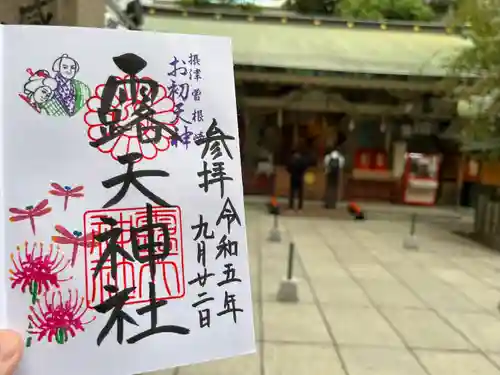 摂津曽根崎
お初天神
参拝
令和五年
九月廿二日
露天神社